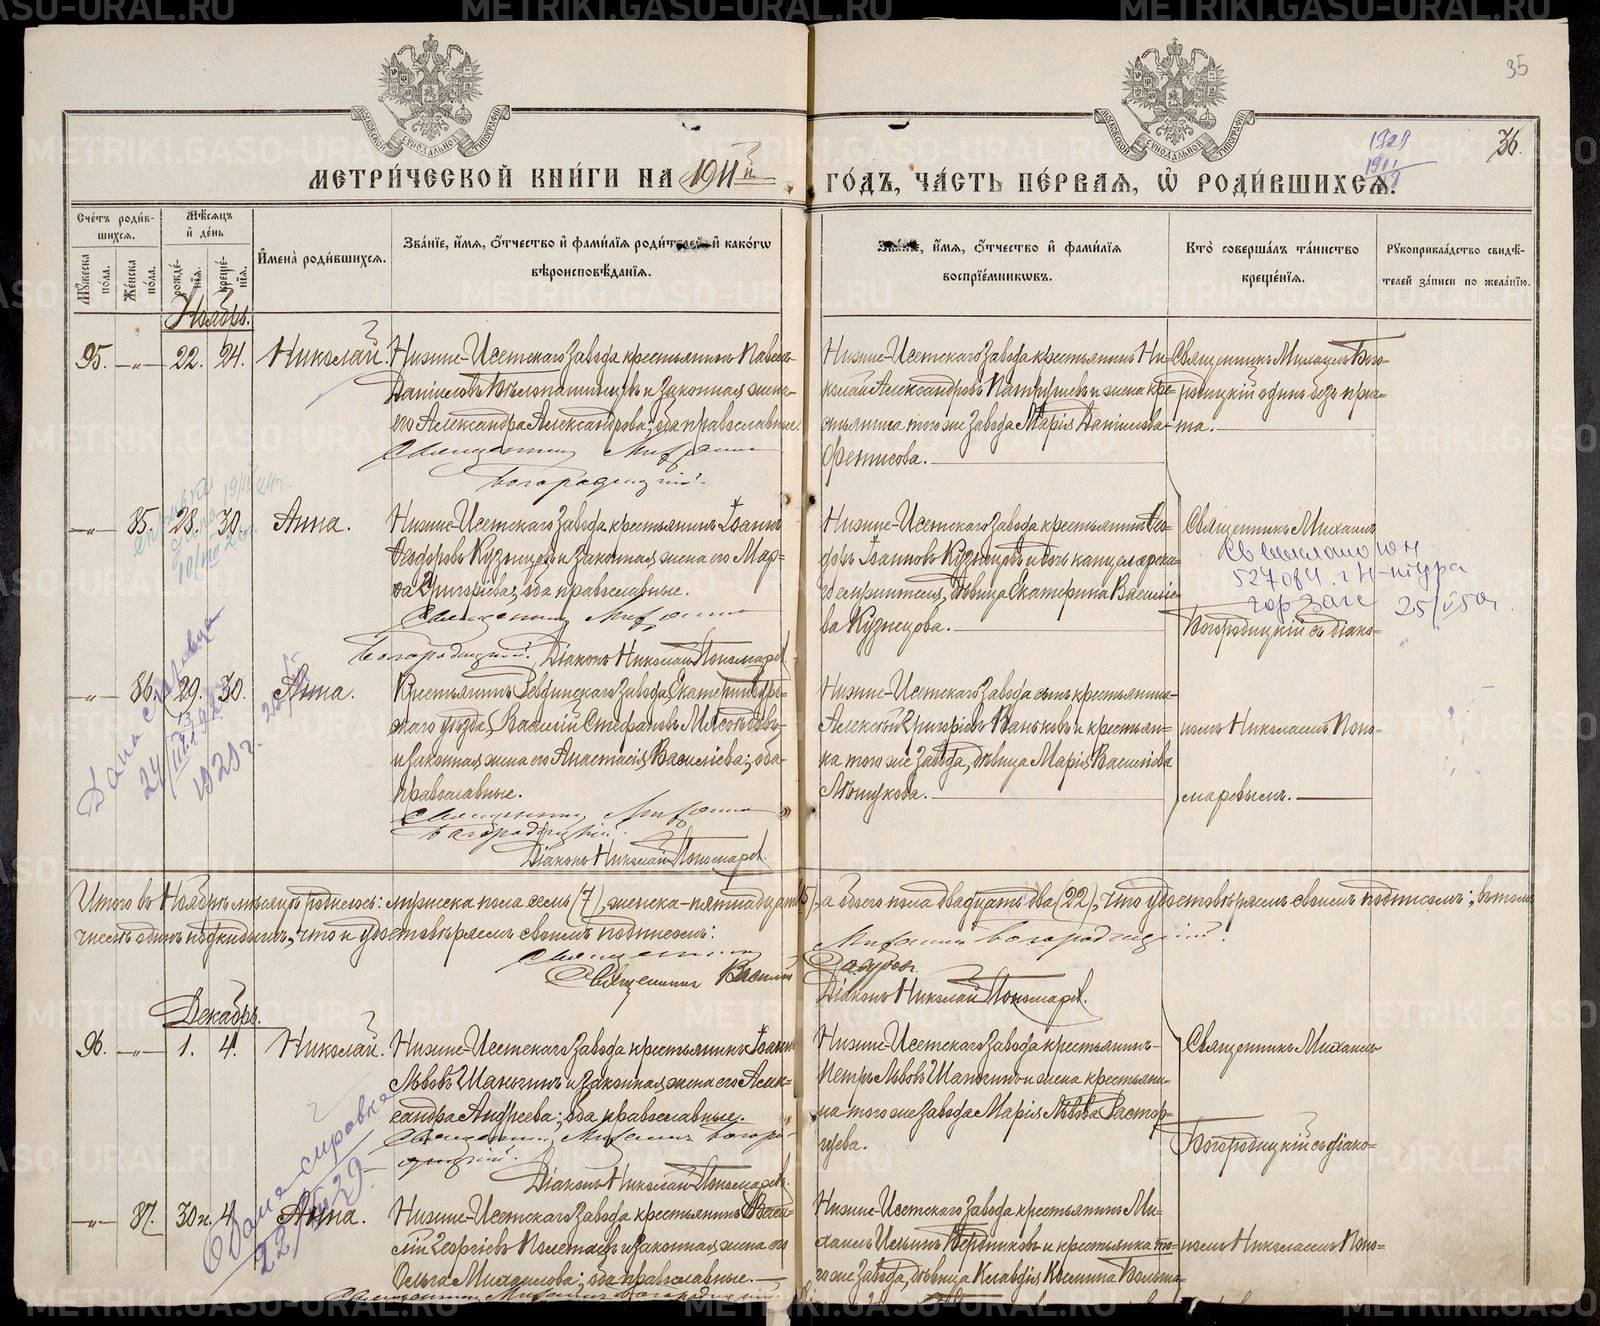 35
36.
1929
1911
МЕТРИ́ЧЕСКОЙ КНИ́ГИ НА 1911й ГО́ДЪ, ЧА́СТЬ ПЕ́РВАЯ, Ѽ РОДИ́ВШИХСѦ.
Сче́тъ роди́вшихсѧ.
Мꙋ́жеска по́ла.
Же́нска по́ла.
Мѣ́сѧцъ и҆ де́нь
рожде́нїѧ.
креще́нїѧ.
И҆мена̀ роди́вшихсѧ.
Зва́нїе, и҆́мѧ, ѻ҆́тчество и҆ фами́лїѧ роди́телей и҆ како́гѡ
вѣроисповѣ́данїѧ.
Зва́нїе, и҆́мѧ, ѻ҆́тчество и҆ фами́лїѧ
воспрїе́мникѡвъ.
Кто̀ соверша́лъ та́инство
креще́нїѧ.
Рꙋкоприкла́дство свидѣ́-
телей за́писи по жела́нїю.
Ноябрь.
95. -„- 22. 24. Николай.
Нижне-Исетскаго завода крестьянинъ Павелъ
Даніиловъ и законная жена
его Александра Александрова; оба православные.
Священникъ Михаилъ
Богородицкій.
Нижне-Исетскаго завода крестьянинъ Ни-
колай Александровъ Патрушевъ и жена кре-
стьянина того же завода Марія Даніилова
Фетисова.
Священникъ Михаилъ Бого-
родицкій одинъ безъ при-
та.
-„- 85. 28. 30. Анна.
Нижне-Исетскаго завода крестьянинъ Іоаннъ
Ѳеодоровъ Кузнецовъ и законная жена его Мар-
ѳа Григорьева; оба православные.
Священникъ Михаилъ
Богородицкій. Діаконъ Николай Пономаревъ
Нижне-Исетскаго завода крестьянинъ Ѳео-
доръ Іоанновъ Кузнецовъ и дочь канцелярска-
го служителя, дѣвица Екатерина Василіе-
ва Кузнецова.
Священникъ Михаилъ
Богородицкій съ діако-
25/V50г.
-„- 86. 29. 30. Анна.
Крестьянинъ Ревдинскаго завода, Екатеринбург-
скаго уѣзда, Василій Стефановъ
и законная жена его Анастасія Василіева; оба
православные.
Священникъ Михаилъ
Богородицкій.
Діаконъ Николай Пономаревъ.
Нижне-Исетскаго завода сынъ крестьянина
Алексѣй Григоріевъ Ваньковъ и крестьян-
ка того же завода, дѣвица Марія Василіева
номъ Николаемъ Поно-
маревымъ.
Дана справка
1929г.
Итого въ Ноябрѣ мѣсяцѣ родилось: мужеска пола семь (7), женска-пятнадцать (15), а обоего пола двадцать два (22), что удостовѣряемъ своимъ подписомъ; въ томъ
числѣ одинъ подкидышъ, что и удостовѣряемъ своимъ подписомъ:
Священникъ Михаилъ Богородицкій.
Священникъ Василій
Діаконъ Николай Пономаревъ.
Декабрь.
96. -„- 1. 4. Николай.
Нижне-Исетскаго завода крестьянинъ Іоаннъ
Львовъ Шаньгинъ и законная жена его Алек-
сандра Андреева; оба православные.
Священникъ Михаилъ Богоро-
дицкій.
Діаконъ Николай Пономаревъ.
Нижне-Исетскаго завода крестьянинъ
Петръ Львовъ Шаньгинъ и жена крестьяни-
на того же завода Марія Львова Растор-
гуева.
Священникъ Михаилъ
Богородицкій съ діако-
-„- 87. 30н. 4. Анна.
Нижне-Исетскаго завода крестьянинъ Васи-
лій Георгіевъ и законная жена его
Ольга Михаилова; оба православные.
Священникъ Михаилъ Богородицкій.
Нижне-Исетскаго завода крестьянинъ Ми-
хаилъ Ильинъ и крестьянка то-
го же завода, дѣвица Клавдія
номъ Николаемъ Поно-
METRIKI.GASO-URAL.RU